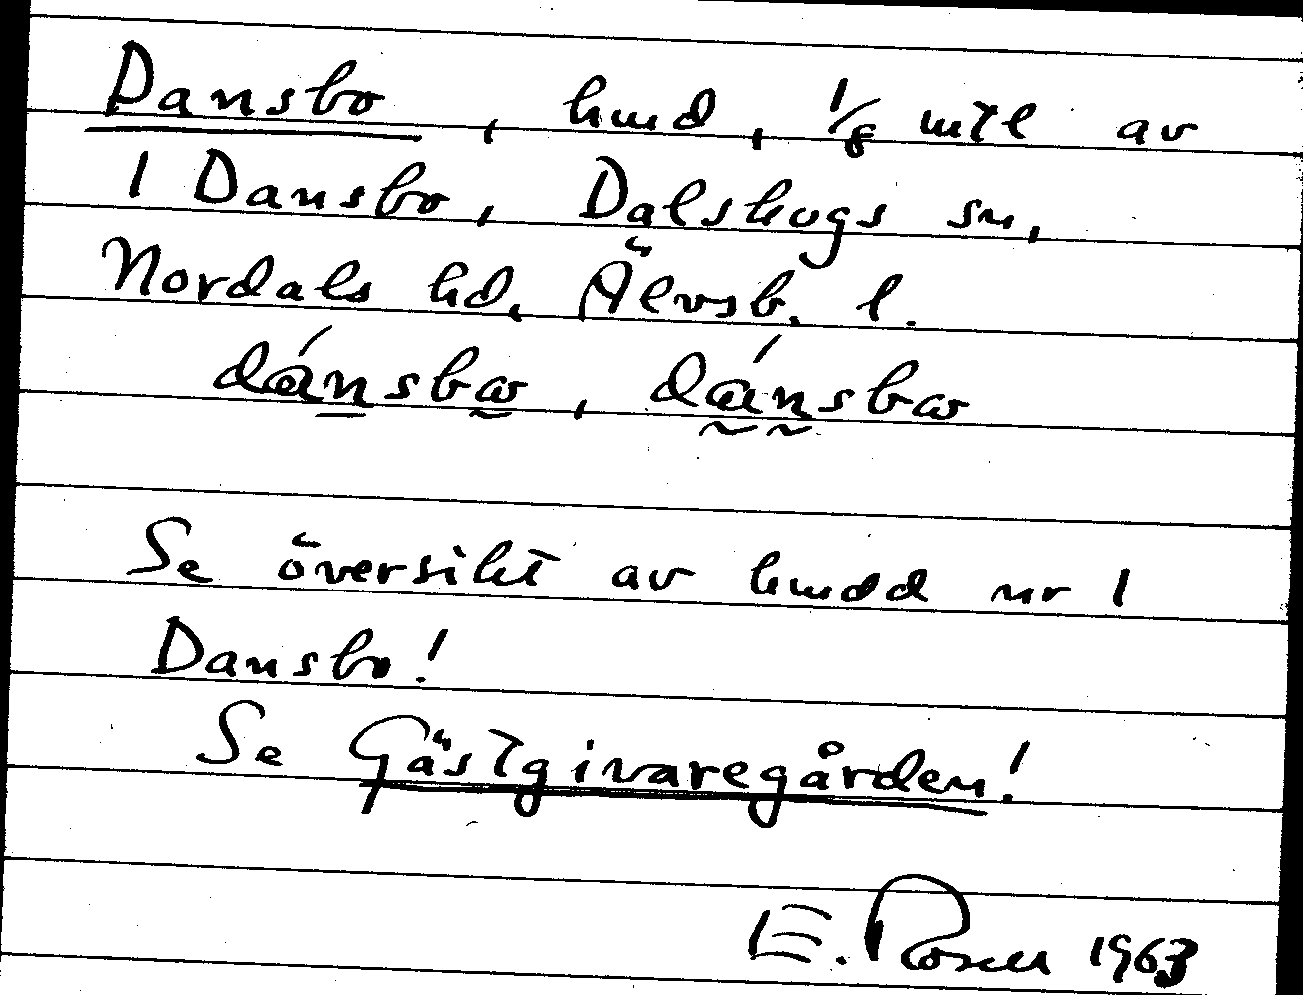 Dansbo, hmd, 1/8 mtl av
1 Dansbo, Dalskogs sn,
Nordals hd, Älvsb. l.
Se översikt av hmdd nr 1
Dansbo!
Se Gästgivaregården!
E. Rosell 1963